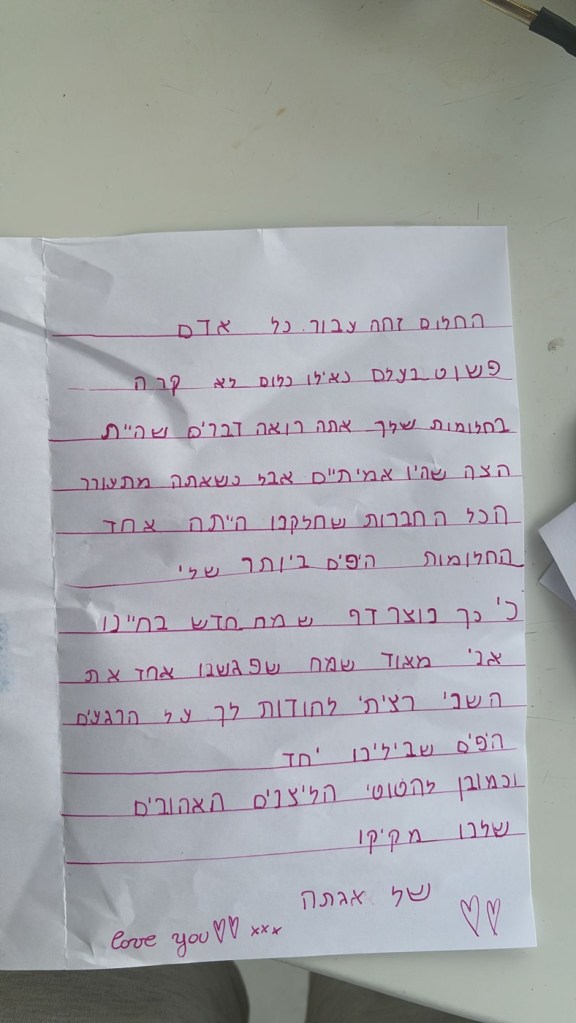 החלום זהה עבור כל אדם
פשוט בעלם כאילו כלום לא קרה
בחלומות שלך אתה רואה דברים שהיית
רוצה שהיו אמיתיים אבל כשאתה מתעורר
הכל החברות שחלקנו הייתה אחד
החלומות היפים ביותר שלי
כי כך נוצר דף שמח חדש בחיינו
אני מאוד שמח שפגשנו אחד את
השני רציתי להודות לך על הרגעים
היפים שבילינו יחד
וכמובן הליצנים האהובים
שלנו מקיקו
של אגתה
love you♡♡ xxx